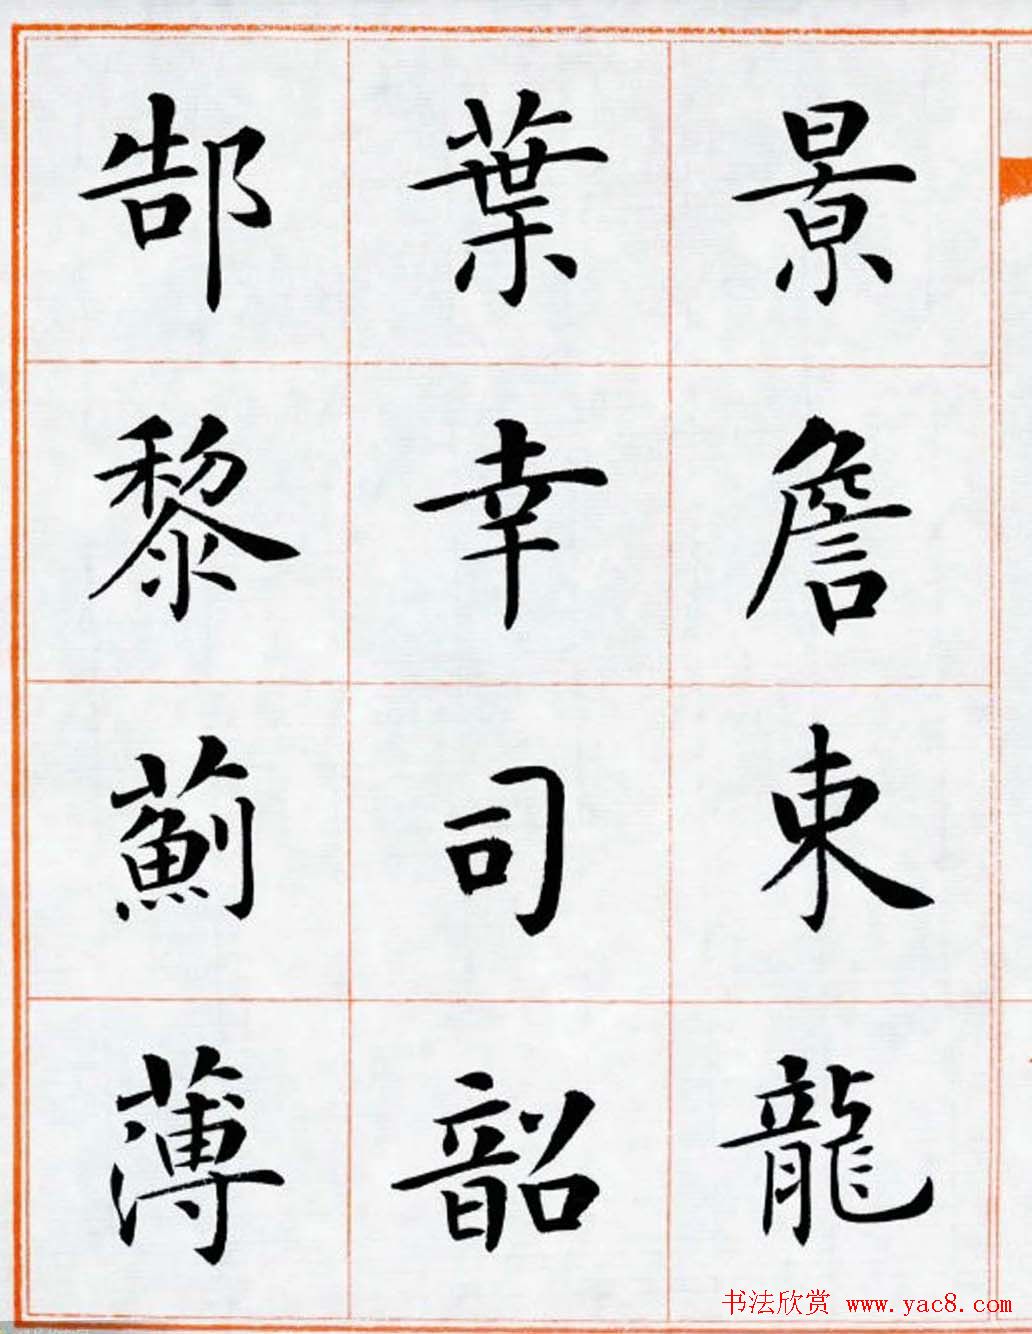 景詹束龍
葉幸司韶
郜黎薊薄
书法欣赏 www.yac8.com